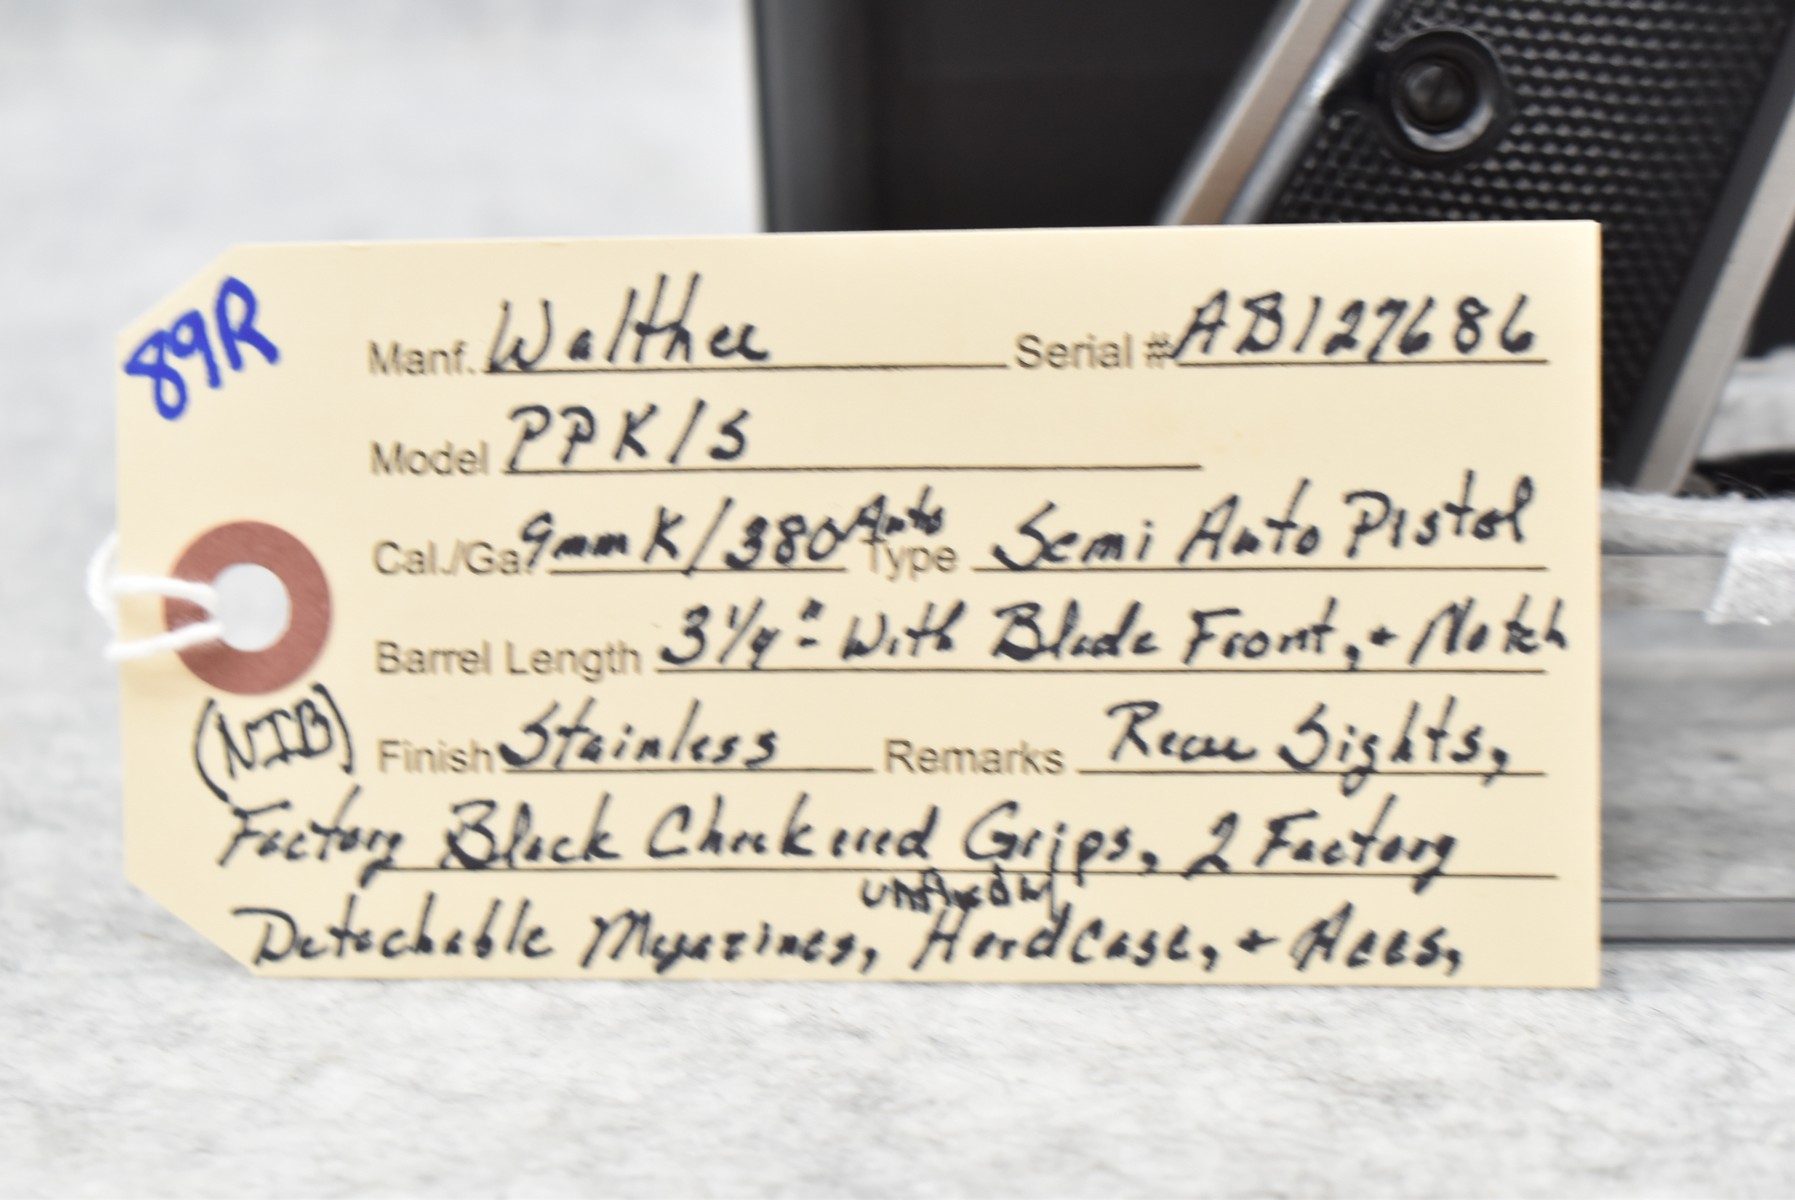 89R
Manf. Walther Serial # AB127686
Model PPK/S
Cal./Ga. 9mmK/380 Auto Type Semi Auto Pistol
Barrel Length 3 1/4" With Blade Front, + Notch
(NIB)
Finish Stainless Remarks Rear Sights,
Factory Black Checkered Grips, 2 Factory
unfired w/
Detachable Magazines, Hard Case, + Accs,